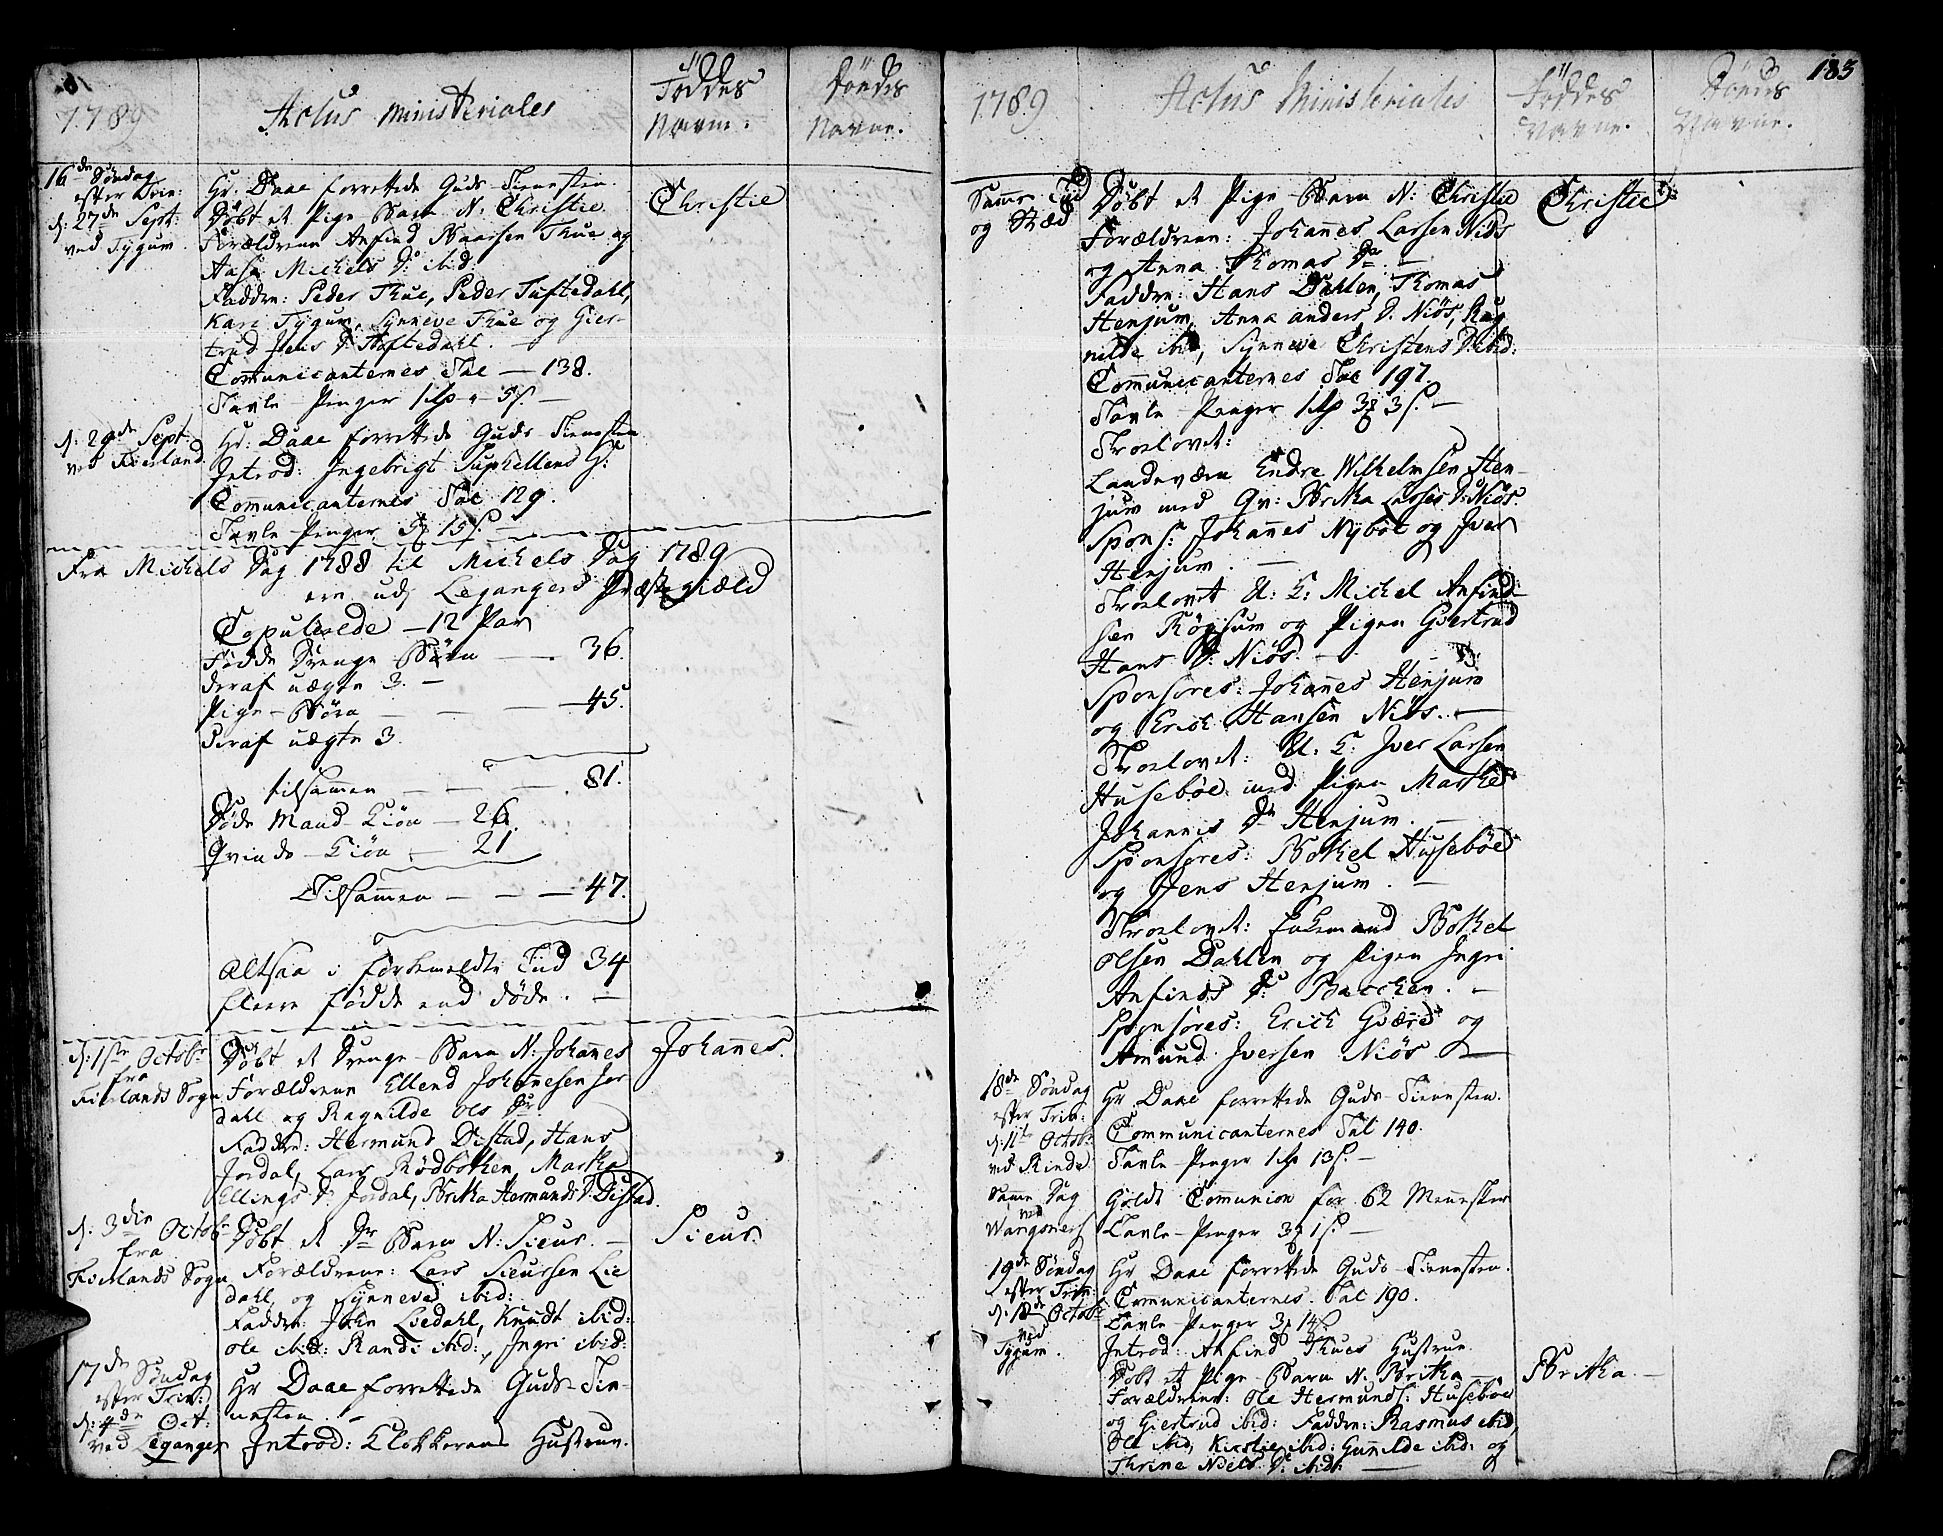 1789
Actus ministeriales
Föddes
Navne.
Dödes
Navne.
16de Søndag
efter Trin:
d: 27de Sept:
ved Tygum.
Hr. Daae forrettede Guds-Tienesten.
Döbt et Pige Barn N: Christie
Forældrene Anfind Baarsen Thue og
Aase Michels D: ibid:
Faddre: Peder Thue, Peder Tuftedahl,
Kari Tygum, Synneve Thue og Gier-
trud Jens D: Tuftedahl.
Comunicanternes Tal — 138.
Tavle-Penger 1 rdr - 5 s. —
Christie
d: 29de Sept:
ved Fierland.
Hr: Daae forrettede Guds-Tienesten
Introd: Ingebrigt Suphellens H:
Comunicanternes Tal 129.
Tavle-Penger 15 s.
Fra Michels Dag 1788 til Michels Dag 1789
ere udj Legangers Præstegield
Copulerede — 12 Par
Fødde Drenge Børn — 36.
deraf uægte 3. —
Pige-Børn — 45.
Deraf uægte 3.
tilsamen — 81.
Døde Mand-Kiøn — 26.
Qvinde-Kiøn — 21
Tilsamen — 47.
Altsaa i forbemeldte Tiid 34
fleere fødde end døde. —
d: 1ste Octobr
fra
Fierlands Sogn
Döbt et Drenge-Barn N: Johannes
Forældrene Ellend Johannesen Jor
dahl og Ragnilde Ols Dr
Faddre: Hermund Distad, Hans
Jordal, Lars Rødbotken, Martha
Ellings D: Jordal, Britha Hermunds D: Distad.
Johannes.
d. 3die Octobr
fra
Fierlands Sogn
Döbt et Dr Barn N: Sieur. —
Forældrene: Lars Sieursen Lie
dahl og Synneved ibid:
Faddre: John Liedahl, Knudt ibid:
Ole ibid: Randi ibid:, Ingri ibid:
Sieur.
17de Søndag
efter Trin:
d: 4de Oct:
ved Leganger
Hr Daae forrettede Guds-Tie-
nesten. —
Introd: Klokkerens Hustrue.
183
1789
Actus Ministeriales
Föddes
Navne.
Dödes
Navne.
Samme Tiid
og Stæd
Döbt et Pige-Barn N: Christie
Forældrene: Johannes Larsen Niøs
og Anna Thomas Dr —
Faddre: Hans Dahlen, Thomas
Henjum, Anna Anders D. Niøs, Rag
nilde ibid, Synneve Christens D: ibid:
Comunicanternes Tal 197.
Tavle-Penger 1 rdr 3 3 s. —
Christie
Troelovet:
Landeværn Endre Wilhelmsen Hen-
jum med Qv: Britha Larses D: Niøs.
Spons: Johannes Nybøe og Iver
Henjum. —
Troelovet U: K: Michel Anfind-
sen Røysum og Pigen Giertrud
Hans D: Niøs. —
Sponsores: Johannes Henjum
og Erich Hansen Niøs. —
Troelovet: U: K: Iver Larsen
Husebøe med Pigen Marthe
Johannis Dr Henjum. —
Sponsores: Bothel Husebøe
og Jens Henjum. —
Troelovet: Enkemand Bothel
Olsen Dahlen og Pigen Ingri
Anfinds D: Bachen. —
Sponsores: Erich Giære og
Amund Iversen Niøs —
18de Søndag
efter Trin:
d: 11te Octobr
ved Rinde
Hr Daae forrettede Guds-Tienesten.
Communicanternes Tal 140.
Tavle-Penger 1 rdr 13 s. —
Samme Dag
ved
Wangsnes
Holdt Communion for 62 Mennesker
Tavle-Penger 3 1 s. —
19de Søndag
efter Trin:
d: 18de Octobr
ved
Tygum.
Hr Daae forrettede Guds-Tienesten.
Communicanternes Tal 190.
Tavle-Penger 3 14 s.
Introd: Anfind Thues Hustrue.
Döbt et Pige-Barn N: Britha
Forældrene: Ole Hermunds: Husebøe
og Giertrud ibid: Faddre: Rasmus ibid,
Ole ibid, Kirstie ibid: Gunnilde ibid: og
Thrine Niels D: ibid:
Britha. —